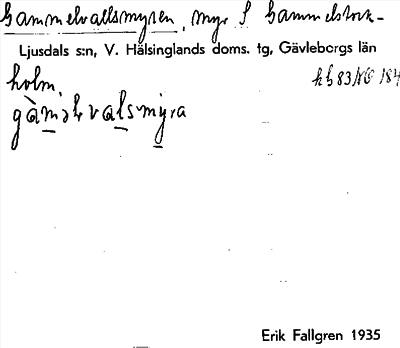 Gammelvallsmyren, myr S Gammelstork-
Ljusdals s:n, V. Hälsinglands doms. tg, Gävleborgs län
holm.
hb 83 NO 184
gàməlvalsmyra
Erik Fallgren 1935